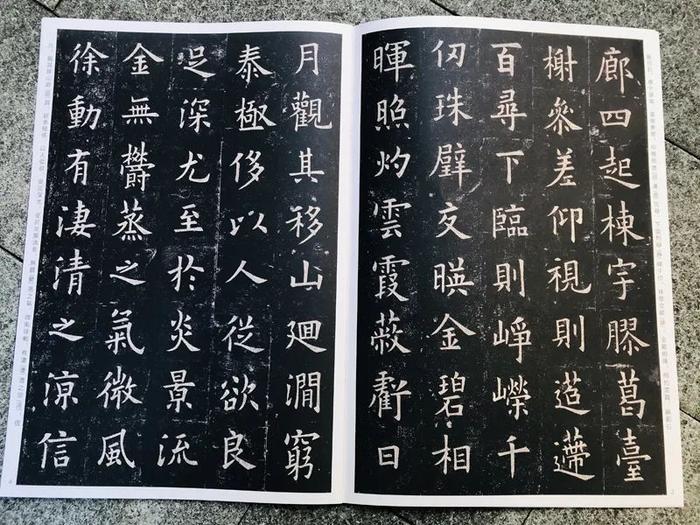 廊四起棟宇膠葛臺
榭叅差仰視則迢遰
百尋下臨則崢嶸千
仞珠璧交暎金碧相
暉照灼雲霞蔽虧日
月觀其移山廻澗窮
泰極侈以人從欲良
足深尤至於炎景流
金無欝蒸之氣微風
徐動有淒清之涼信